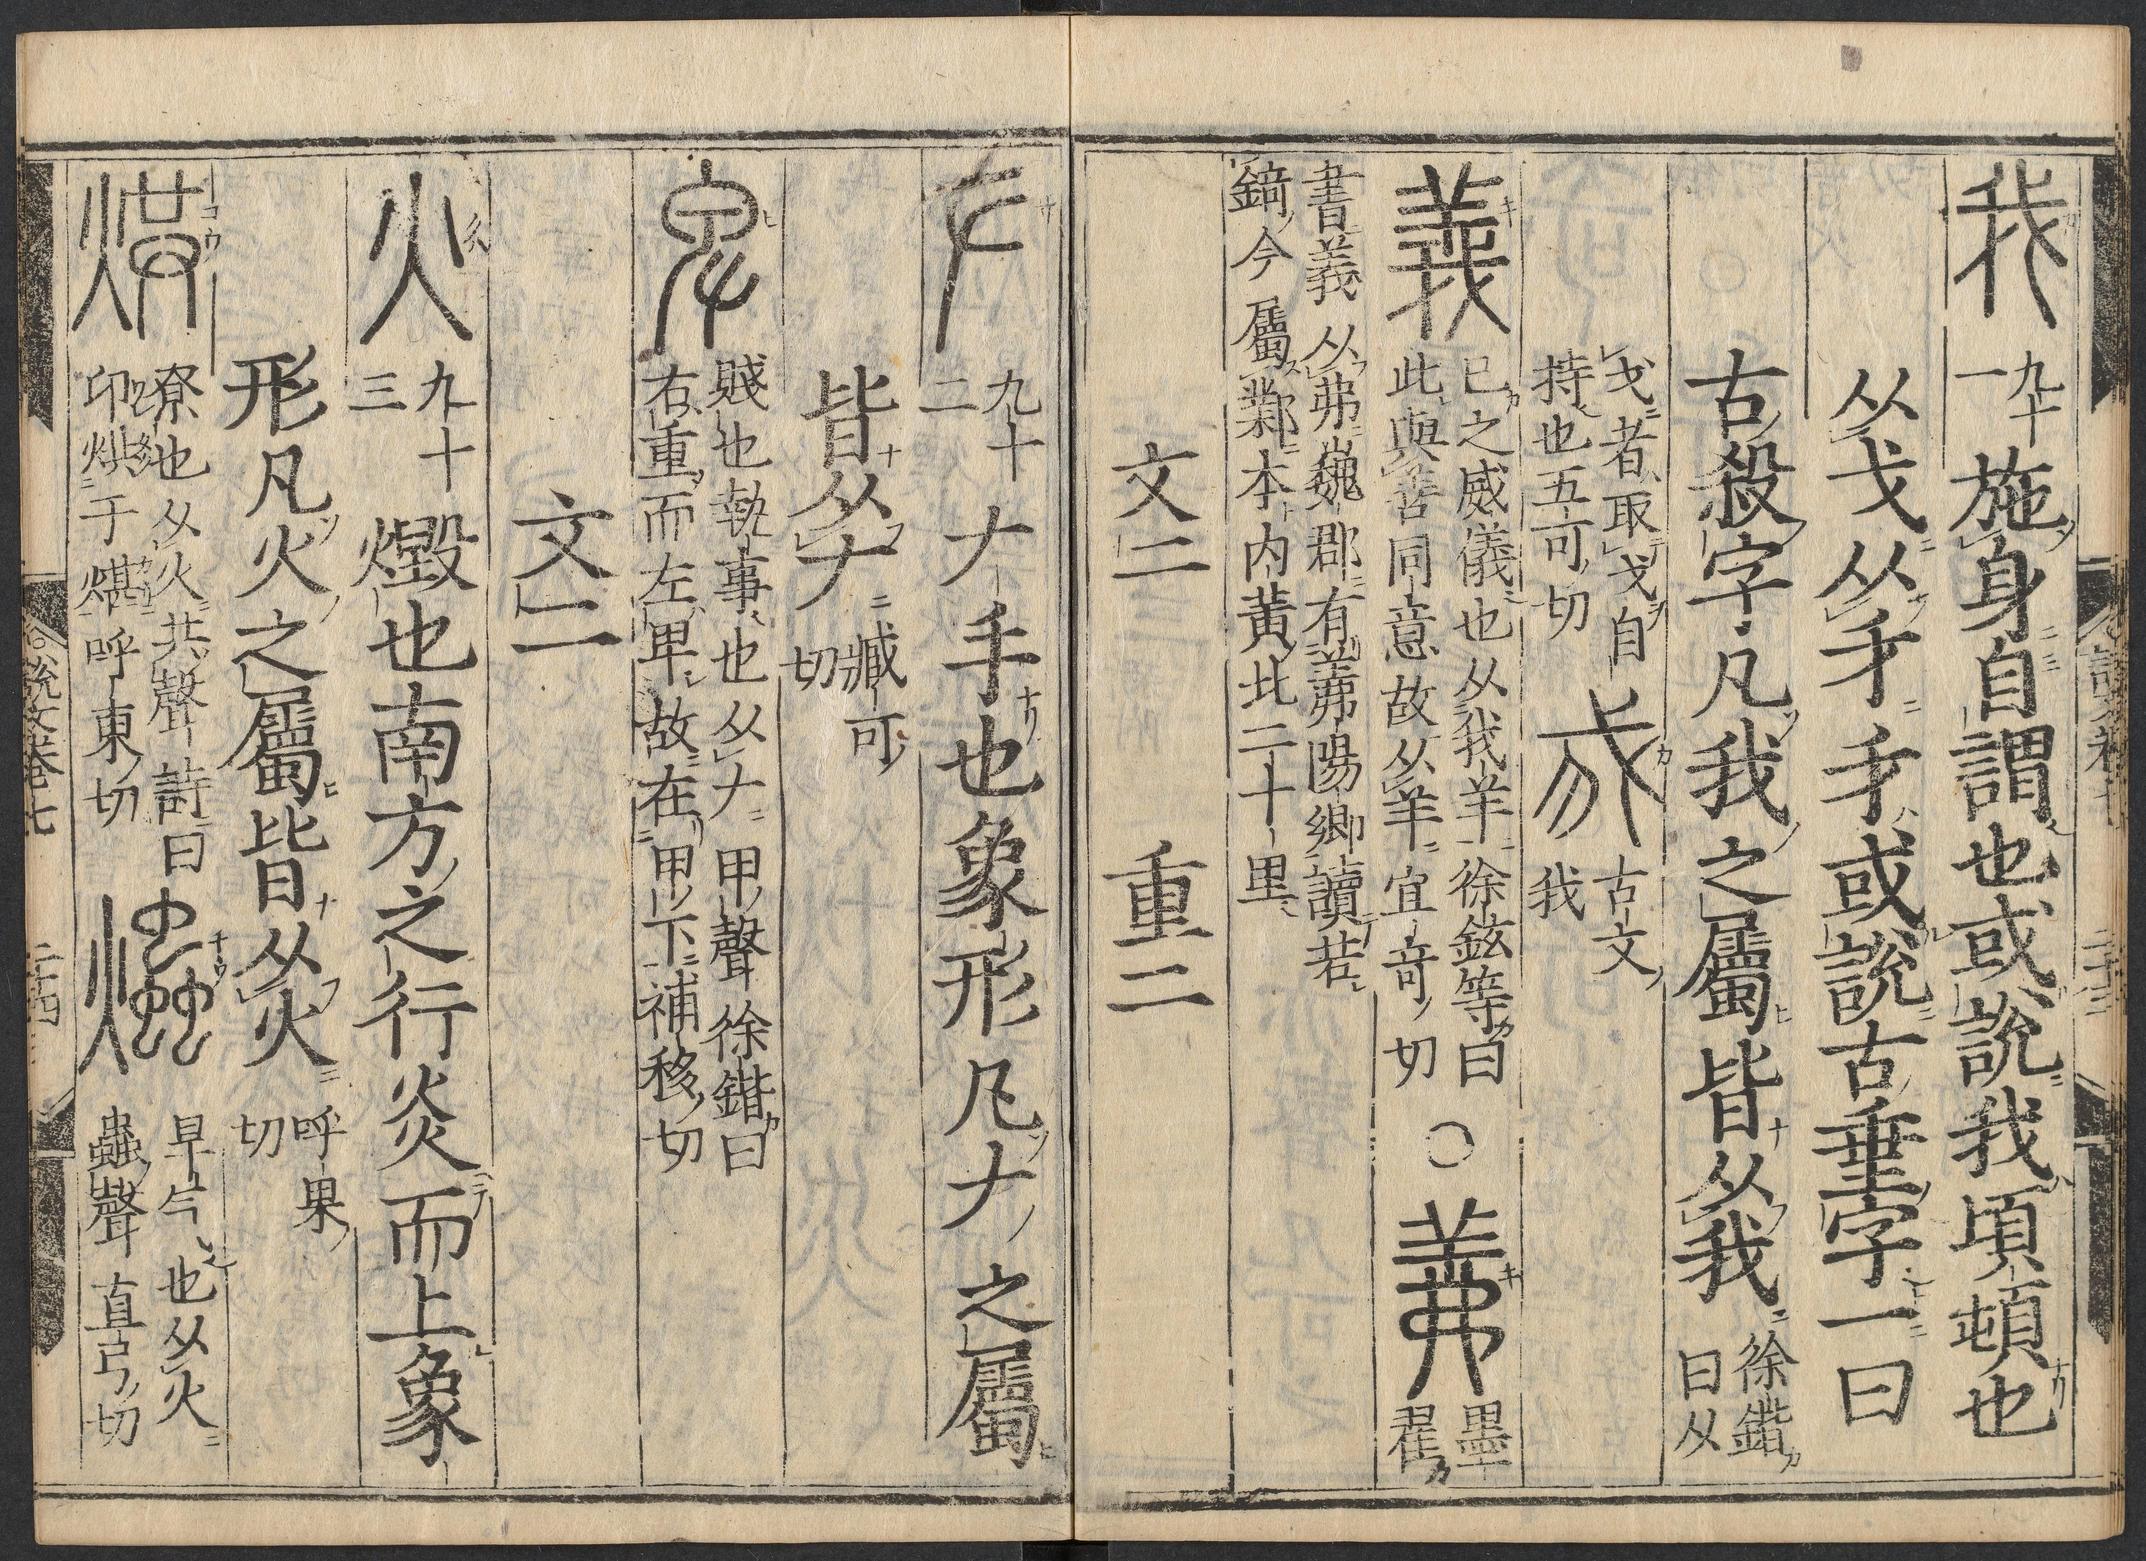 我 九十一 施身自謂也或說我頃頓也
从戈从𠄒𠄒或說古垂字一曰
古殺字凡我之屬皆从我 徐鍇曰从
戈者取戈自持也五可切 𢦠 古文我
義 已之威儀也从我羊 徐鉉等曰此與善同意故从羊宜奇切 〇 羛 墨翟
書義从弗魏郡有羛陽鄉讀若錡今屬鄴本內黃北二十里
文二 重二
𠂇 九十二 𠂇手也象形凡𠂇之屬
皆从𠂇 臧可切
卑 賤也執事也从𠂇甲聲 徐鍇曰右重而左卑故在甲下補移切
文二
火 九十三 燬也南方之行炎而上象
形凡火之屬皆从火 呼果切
烘 尞也从火共聲詩曰卬烘于煁呼東切 爞 旱气也从火蟲聲直弓切
說文卷七 二十四